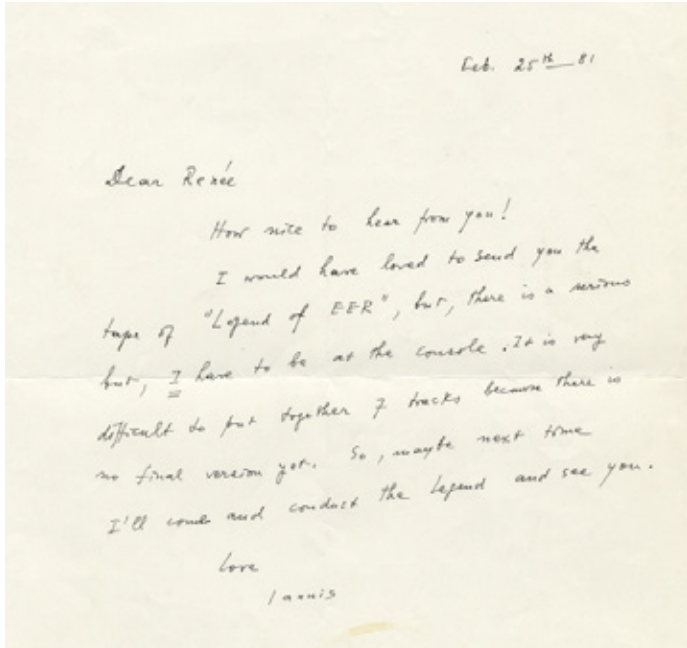 Feb. 25th 81
Dear Renée
How nice to hear from you!
I would have loved to send you the
tape of "Legend of EER", but, there is a serious
but, I have to be at the console. It is very
difficult to put together 7 tracks because there is
no final version yet. So, maybe next time
I'll come and conduct the Legend and see you.
Love
Iannis